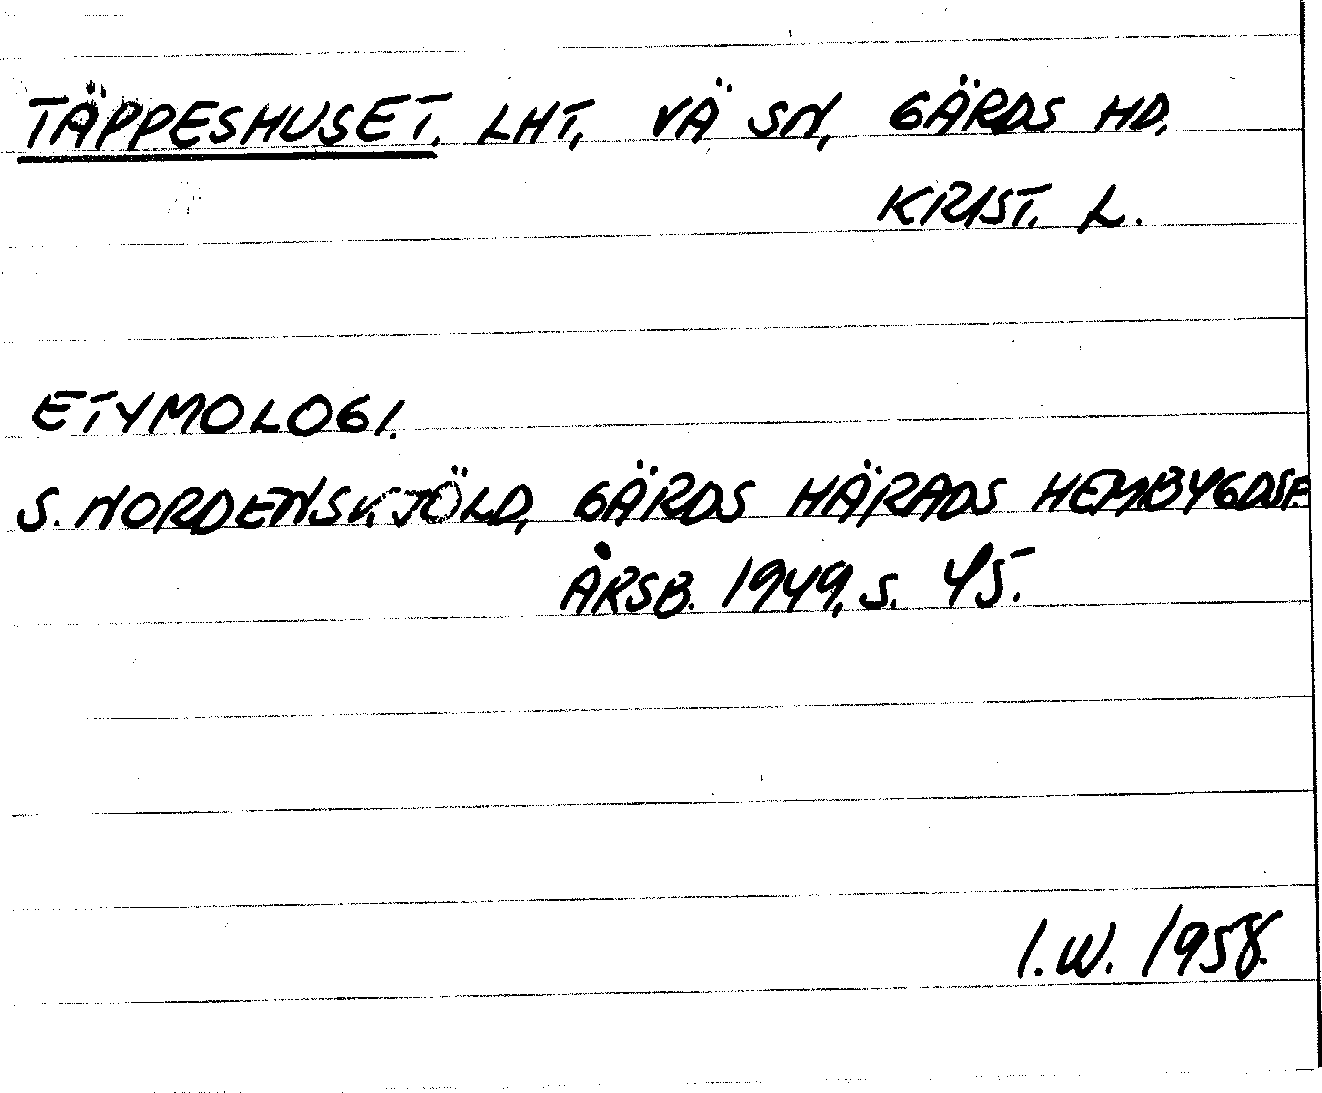 TÄPPESHUSET. LHT, VÄ SN, GÄRDS HD,
KRIST. L.
ETYMOLOGI.
S. NORDENSKJÖLD, GÄRDS HÄRADS HEMBYGDSF.
ÅRSB. 1949, S. 45.
I.W. 1958.